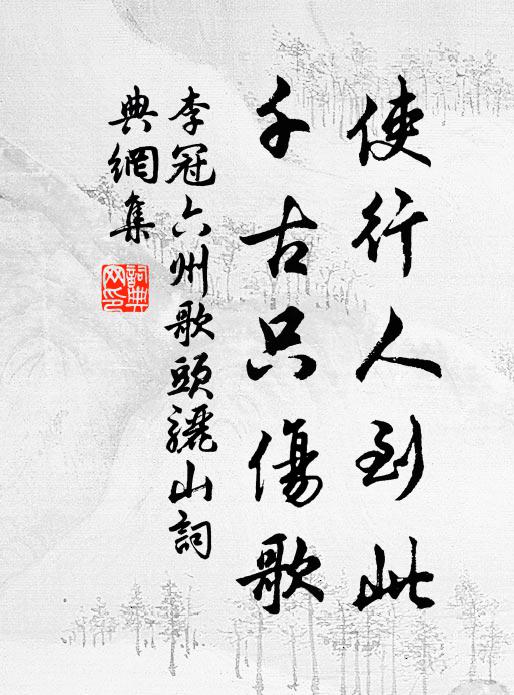 使行人到此
千古只傷歌
李冠六州歌頭驪山詞
典網集
詞典網印